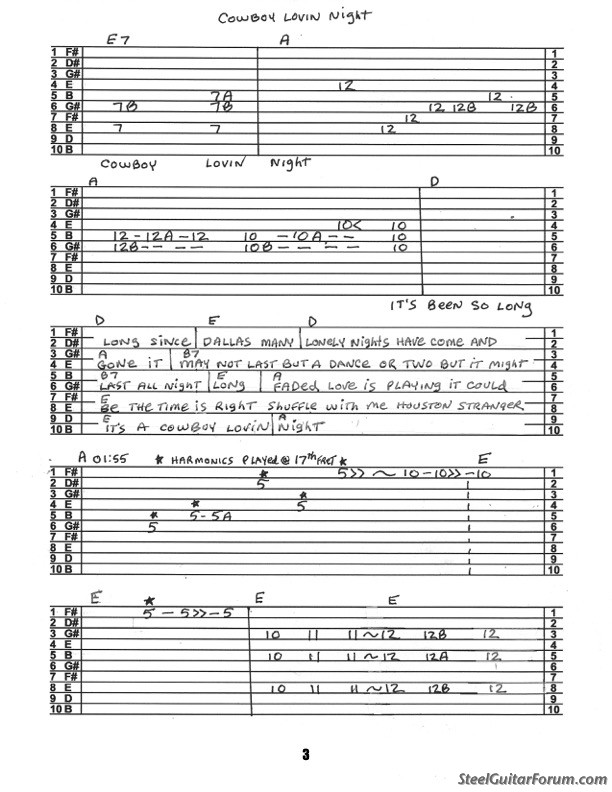 COWBOY LOVIN NIGHT
E7 A
1 F# 1
2 D# 2
3 G# 3
4 E 12 4
5 B 7A 12 5
6 G# 7B 7B 12 12B 12B 6
7 F# 12 7
8 E 7 7 12 8
9 D 9
10 B 10
COWBOY LOVIN NIGHT
A D
1 F# 1
2 D# 2
3 G# 3
4 E 10< 10 4
5 B 12 - 12A - 12 10 - 10A - - 10 5
6 G# 12B - - - 10B - - - - 10 6
7 F# 7
8 E 8
9 D 9
10 B 10
IT'S BEEN SO LONG
D E D
1 F# 1
2 D# LONG SINCE DALLAS MANY LONELY NIGHTS HAVE COME AND 2
3 G# A B7 3
4 E GONE IT MAY NOT LAST BUT A DANCE OR TWO BUT IT MIGHT 4
5 B B7 E A 5
6 G# LAST ALL NIGHT LONG FADED LOVE IS PLAYING IT COULD 6
7 F# E 7
8 E BE THE TIME IS RIGHT SHUFFLE WITH ME HOUSTON STRANGER 8
9 D E A 9
10 B IT'S A COWBOY LOVIN NIGHT 10
A 01:55 * HARMONICS PLAYED @ 17th FRET * E
1 F# 5>> ~ 10 - 10>> - 10 1
2 D# 5 2
3 G# * 3
4 E * 5 4
5 B * 5 - 5A 5
6 G# 5 6
7 F# 7
8 E 8
9 D 9
10 B 10
E * E E
1 F# 5 - 5>> - 5 1
2 D# 2
3 G# 10 11 11 ~ 12 12B 12 3
4 E 4
5 B 10 11 11 ~ 12 12A 12 5
6 G# 6
7 F# 7
8 E 10 11 11 ~ 12 12B 12 8
9 D 9
10 B 10
3
SteelGuitarForum.com